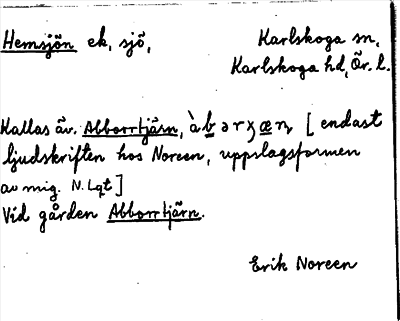 Hemsjön ek, sjö, Karlskoga sn,
Karlskoga hd, Ör. l.
Kallas äv. Abborrtjärn, [endast
ljudskriften hos Noreen, uppslagsformen
av mig. N. Lqt]
Vid gården Abborrtjärn.
Erik Noreen